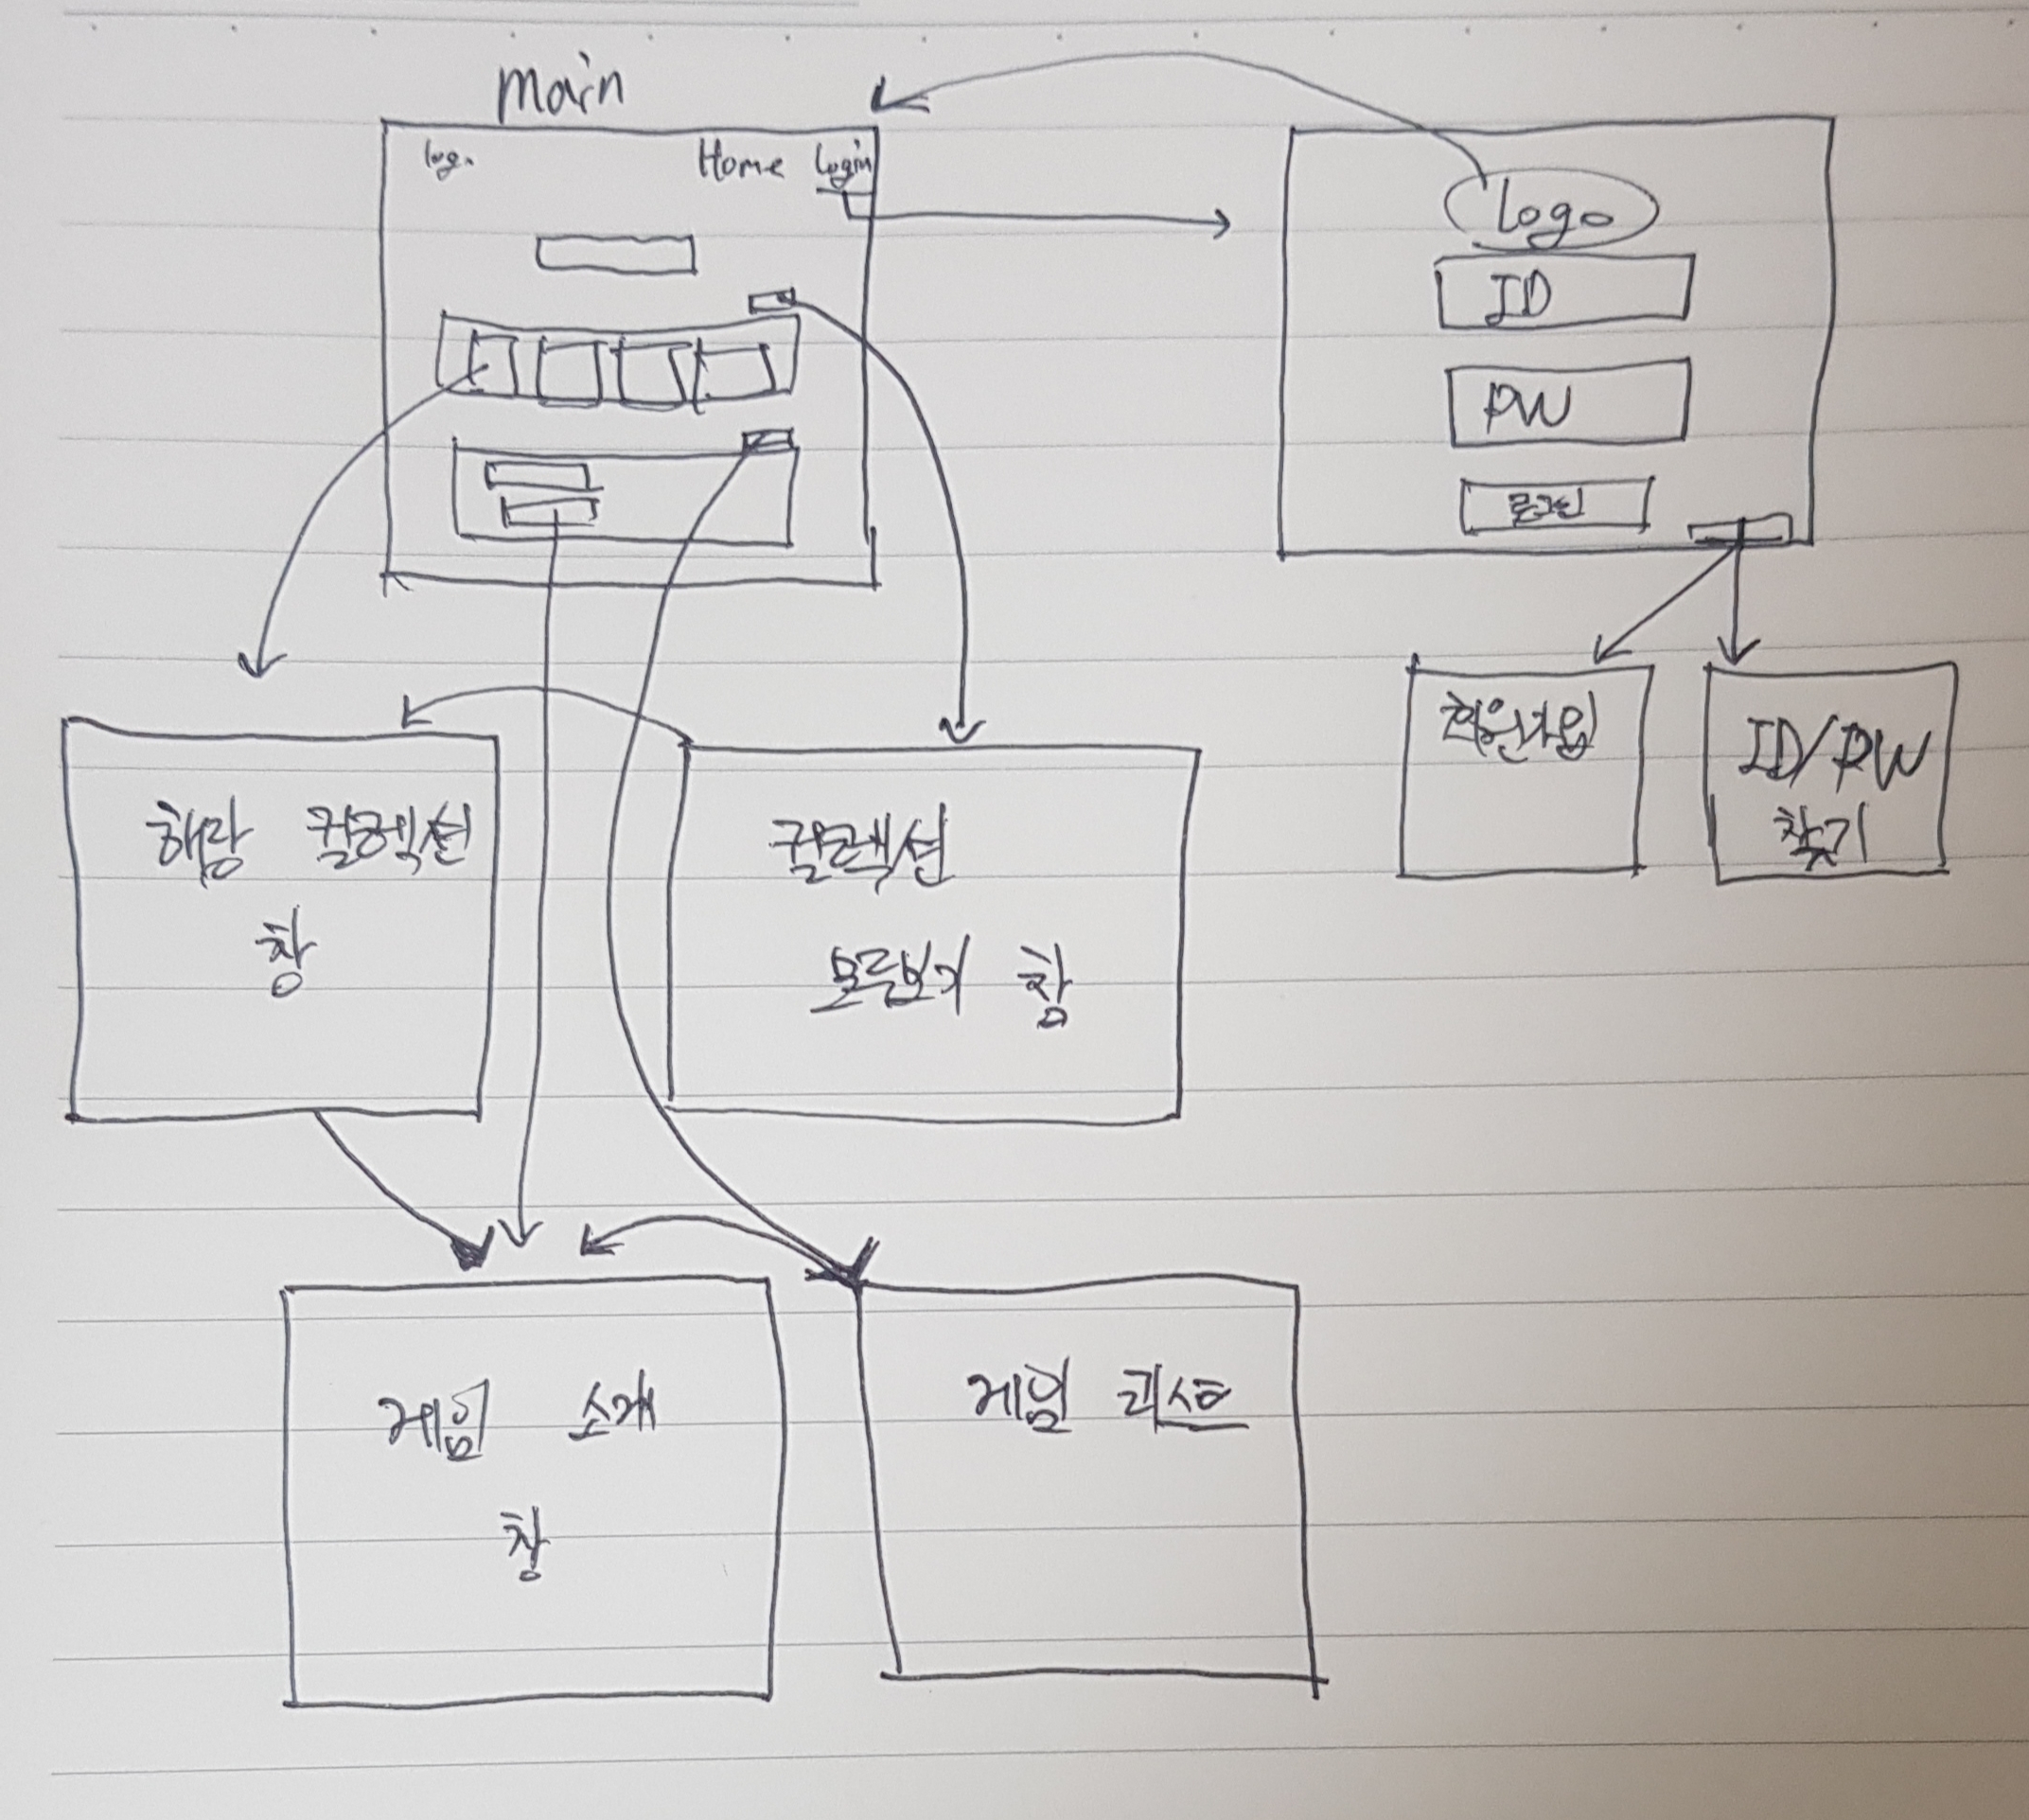 main
logo Home Login
Logo
ID
PW
로그인
회원가입
ID/PW
찾기
해당 컬렉션
창
컬렉션
모두보기 창
게임 소개
창
게임 리스트